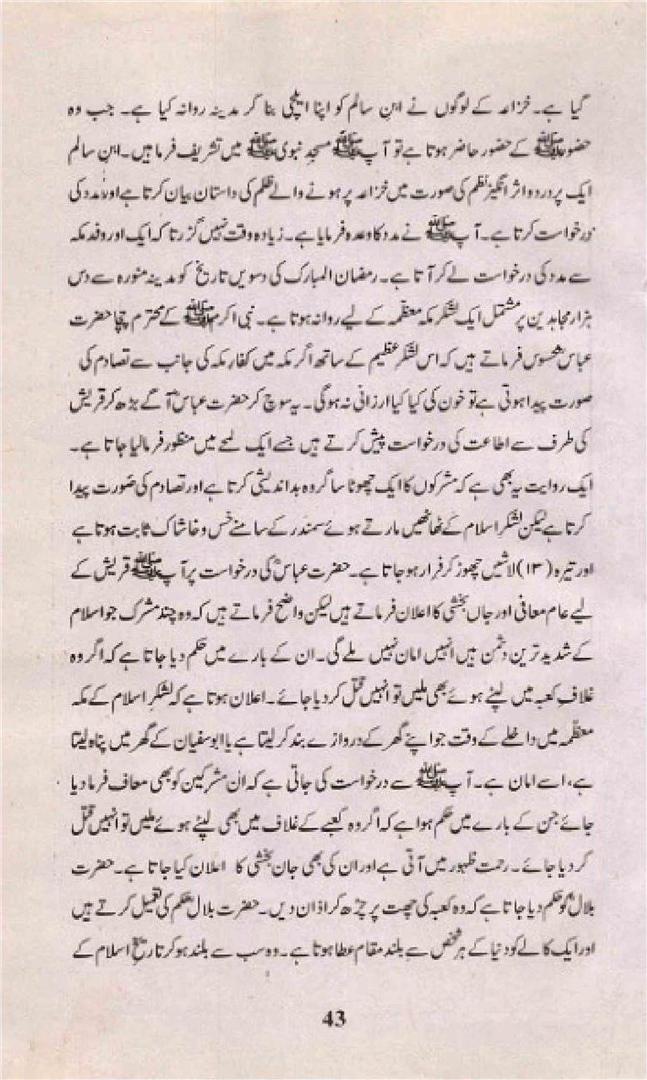 گیا ہے۔ خزاعہ کے لوگوں نے ابنِ سالم کو اپنا ایلچی بنا کر مدینہ روانہ کیا ہے۔ جب وہ
حضور ﷺ کے حضور حاضر ہوتا ہے تو آپ ﷺ مسجدِ نبوی ﷺ میں تشریف فرما ہیں۔ ابنِ سالم
ایک پُر درد و اثر انگیز نظم کی صورت میں خزاعہ پر ہونے والے ظلم کی داستان بیان کرتا ہے اور مدد کی
درخواست کرتا ہے۔ آپ ﷺ نے مدد کا وعدہ فرمایا ہے۔ زیادہ وقت نہیں گزرتا کہ ایک اور وفد مکہ
سے مدد کی درخواست لے کر آتا ہے۔ رمضان المبارک کی دسویں تاریخ کو مدینہ منورہ سے دس
ہزار مجاہدین پر مشتمل ایک لشکر مکہ معظّمہ کے لیے روانہ ہوتا ہے۔ نبی اکرم ﷺ کے محترم چچا حضرت
عباسؓ محسوس فرماتے ہیں کہ اس لشکرِ عظیم کے ساتھ اگر مکہ میں کفارِ مکہ کی جانب سے تصادم کی
صورت پیدا ہوتی ہے تو خون کی کیا کیا ارزانی نہ ہوگی۔ یہ سوچ کر حضرت عباسؓ آگے بڑھ کر قریش
کی طرف سے اطاعت کی درخواست پیش کرتے ہیں جسے ایک لمحے میں منظور فرما لیا جاتا ہے۔
ایک روایت یہ بھی ہے کہ مشرکوں کا ایک چھوٹا سا گروہ بد اندیشی کرتا ہے اور تصادم کی صورت پیدا
کرتا ہے لیکن لشکرِ اسلام کے ٹھاٹھیں مارتے ہوئے سمندر کے سامنے خس و خاشاک ثابت ہوتا ہے
اور تیرہ (۱۳) لاشیں چھوڑ کر فرار ہو جاتا ہے۔ حضرت عباسؓ کی درخواست پر آپ ﷺ قریش کے
لیے عام معافی اور جاں بخشی کا اعلان فرماتے ہیں لیکن واضح فرماتے ہیں کہ وہ چند مشرک جو اسلام
کے شدید ترین دشمن ہیں انہیں امان نہیں ملے گی۔ ان کے بارے میں حکم دیا جاتا ہے کہ اگر وہ
غلافِ کعبہ میں لپٹے ہوئے بھی ملیں تو انہیں قتل کر دیا جائے۔ اعلان ہوتا ہے کہ لشکرِ اسلام کے مکہ
معظّمہ میں داخلے کے وقت جو اپنے گھر کے دروازے بند کر لیتا ہے یا ابوسفیان کے گھر میں پناہ لیتا
ہے، اسے امان ہے۔ آپ ﷺ سے درخواست کی جاتی ہے کہ ان مشرکین کو بھی معاف فرما دیا
جائے جن کے بارے میں حکم ہوا ہے کہ اگر وہ کعبے کے غلاف میں بھی لپٹے ہوئے ملیں تو انہیں قتل
کر دیا جائے۔ رحمت ظہور میں آتی ہے اور ان کی بھی جان بخشی کا اعلان کیا جاتا ہے۔ حضرت
بلالؓ کو حکم دیا جاتا ہے کہ وہ کعبہ کی چھت پر چڑھ کر اذان دیں۔ حضرت بلالؓ حکم کی تعمیل کرتے ہیں
اور ایک کالے کو دنیا کے ہر شخص سے بلند مقام عطا ہوتا ہے۔ وہ سب سے بلند ہو کر تاریخِ اسلام کے
43